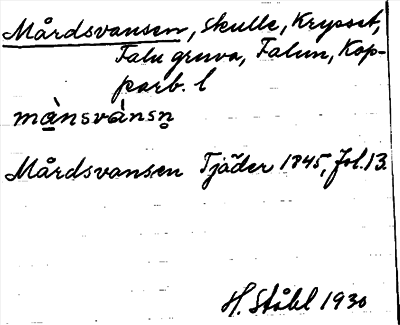 Mårdsvansen, skulle, Krysset,
Falu gruva, Falun, Kop-
parb. l
mànsvànsn̥
Mårdsvansen Tjäder 1845, fol. 13.
H. Ståhl 1930